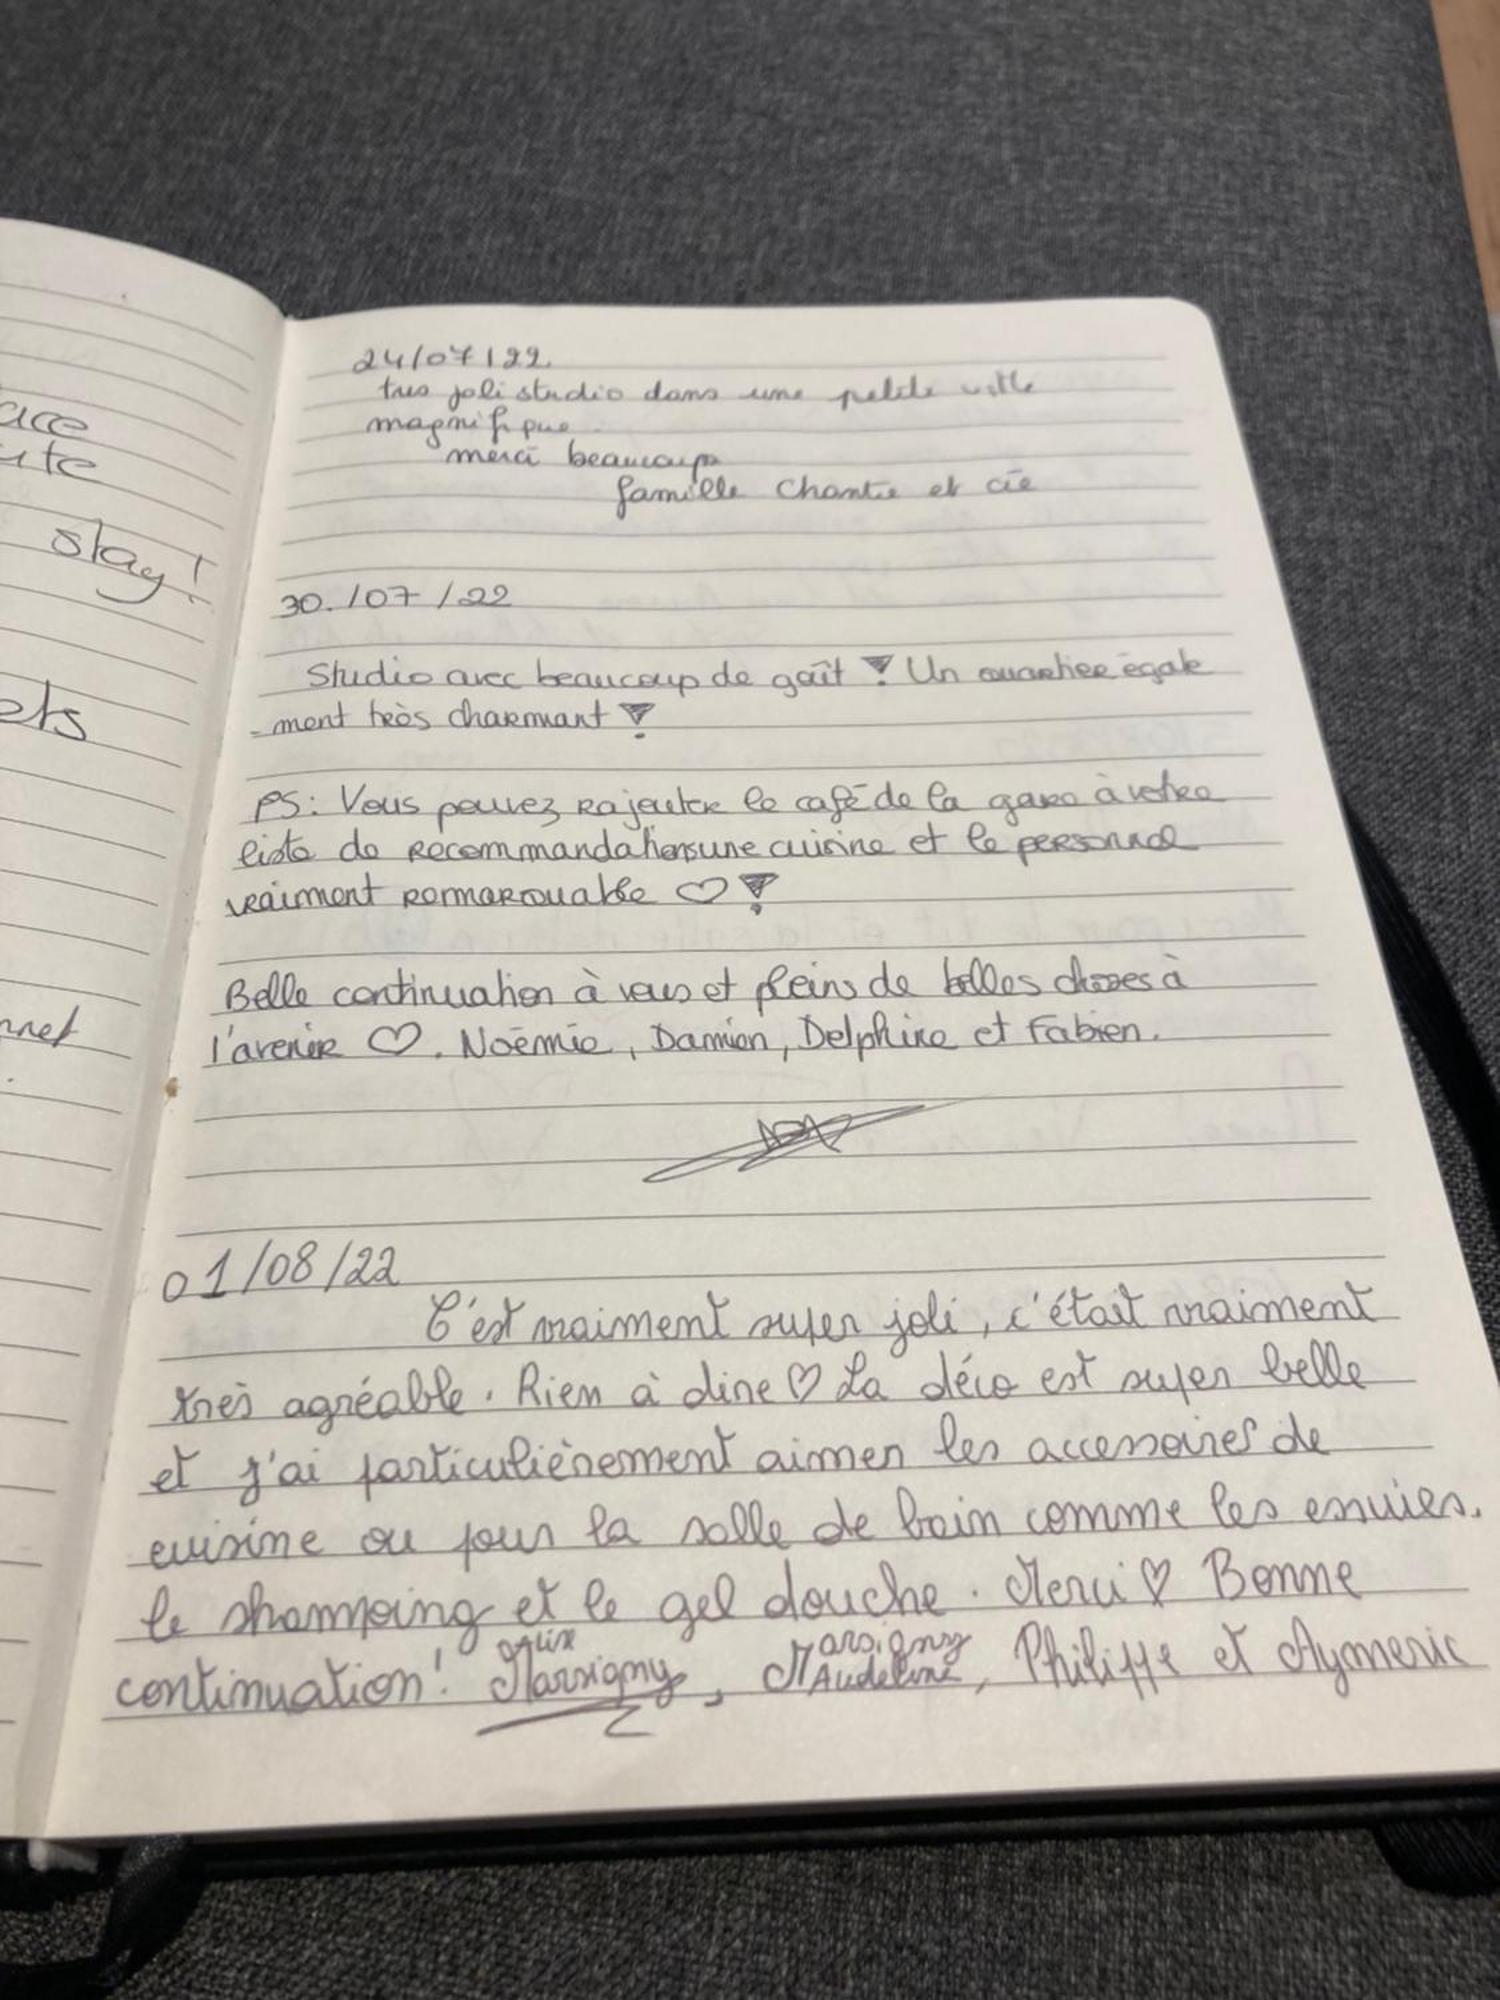 ace
ute
stay!
ets
nnet
24/07/22.
tres joli studio dans une petite ville
magnifique.
merci beaucoup
famille Chantie et cie
30./07/22
Studio avec beaucoup de goût ! Un quartier égale
-ment très charmant !
PS: Vous pouvez rajouter le café de la gare à votre
liste de recommandations une cuisine et le personnel
vraiment remarquable ♡ !
Belle continuation à vous et pleins de belles choses à
l'avenir ♡. Noémie, Damien, Delphine et Fabien.
01/08/22
C'est vraiment super joli, c'était vraiment
très agréable. Rien à dire ♡ La déco est super belle
et j'ai particulièrement aimer les accessoires de
cuisine ou pour la salle de bain comme les essuies.
le shampoing et le gel douche. Merci ♡ Bonne
continuation! Alix Marsigny, Marsigny Audeline, Philippe et Aymeric